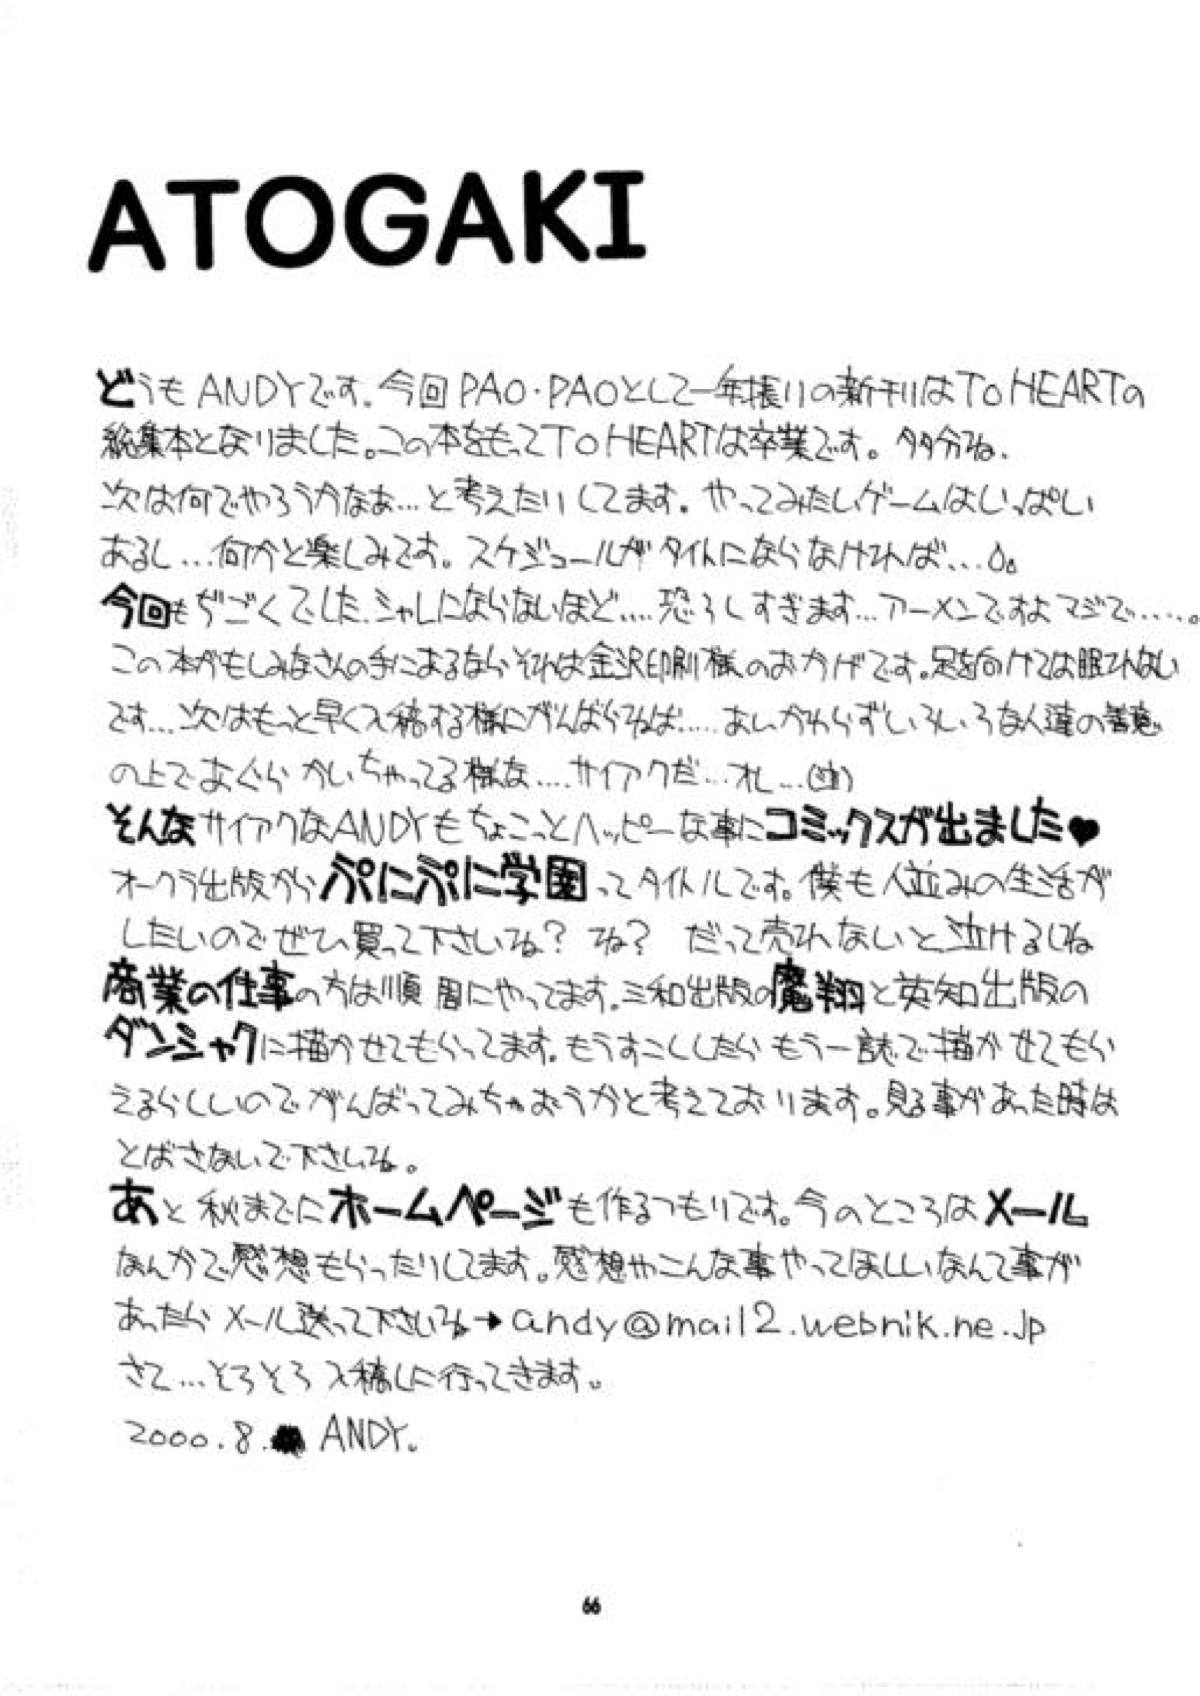 ATOGAKI
どうもANDYです。今回PAO・PAOとして一年振りの新刊はTO HEARTの
総集本となりました。この本をもってTO HEARTは卒業です。タタ分ね.
次は何でやろうかなぁ…と考えたりしてます。やってみたいゲームはいっぱい
あるし…何かと楽しみです。スケジュールがタイトにならなければ…
今回もぢごくでした.シャレにならないほど….恐ろしすぎます…アーメンですよマジで…..。
この本がもしみなさんの手にあるならそれは金沢印刷様のおかげです。足を向けては眠れない
です…次はもっと早く入稿する様にがんばらねば….. あいかわらずいろいろな人達の善意
の上であぐら かいちゃってる様な….サイアクだ…オレ…(泣)
そんなサイアクなANDYもちょこっとハッピーな事にコミックスが出ました♥
オークラ出版からぷにぷに学園ってタイトルです。僕も人並みの生活が
したいのでぜひ買って下さいね？ね？ だって売れないと泣けるしね
商業の仕事の方は順調にやってます.三和出版の魔翔と英知出版の
ダンシャクに描かせてもらってます.もうすこししたらもう一誌で描かせてもら
えるらしいのでがんばってみちゃおうかと考えております。見る事があった時は
とばさないで下さいね。
あと秋までにホームページも作るつもりです。今のところはメール
なんかで感想もらったりしてます。感想やこんな事やってほしいなんて事が
あったらメール送って下さいね→andy@mail2.webnik.ne.jp
さて…そろそろ入稿しに行ってきます。
2000.8. ANDY.
66